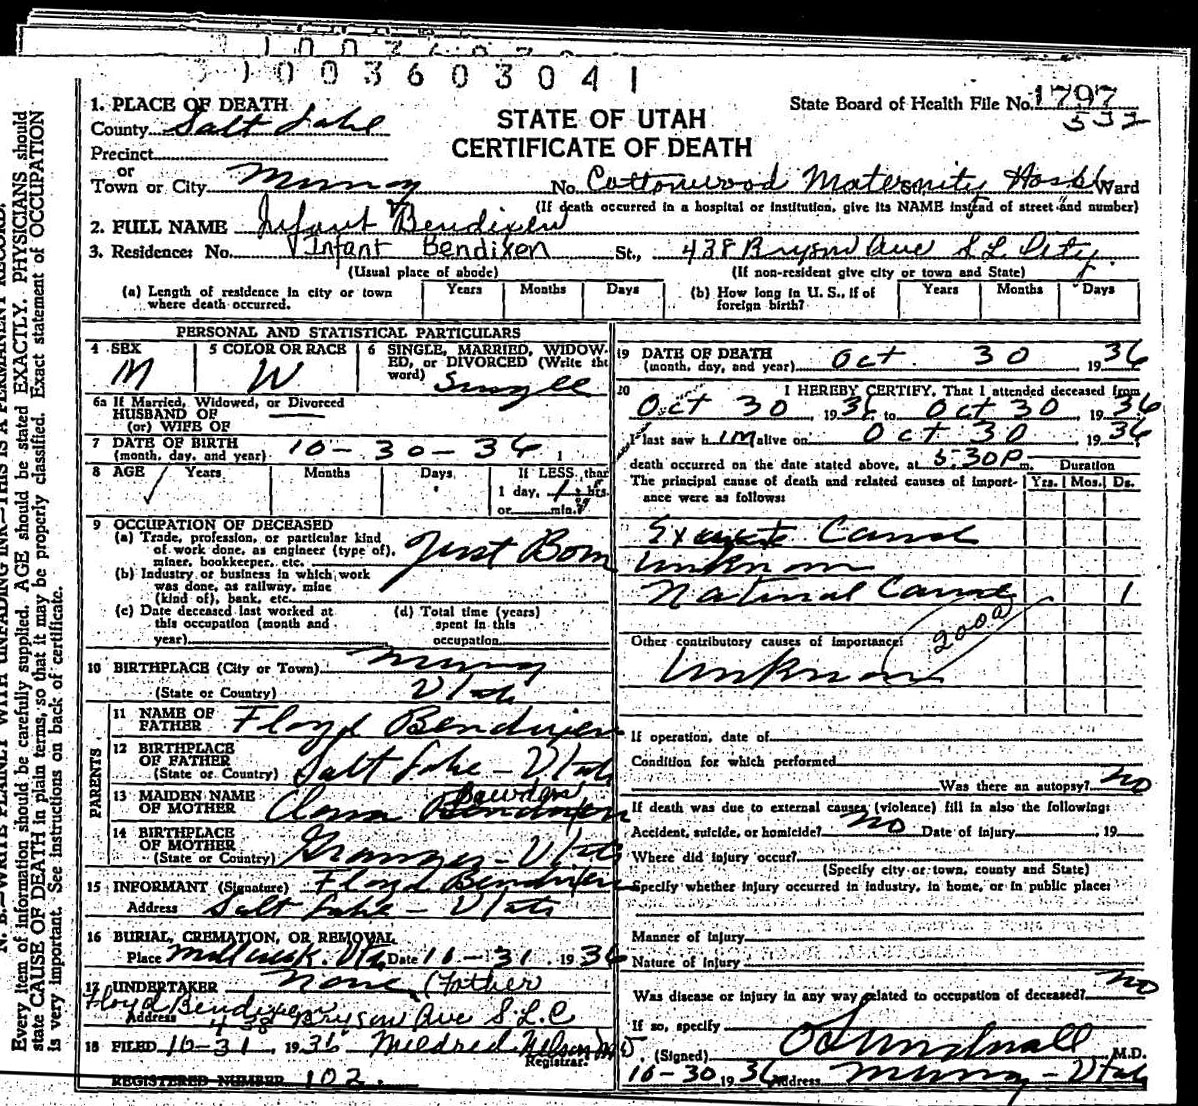 1003603041
1. PLACE OF DEATH
County Salt Lake
Precinct
or
Town or City Murray
STATE OF UTAH
CERTIFICATE OF DEATH
State Board of Health File No. 1797
532
No. Cottonwood Maternity Hospl Ward
(If death occurred in a hospital or institution, give its NAME instead of street and number)
2. FULL NAME Infant Bendixen
3. Residence: No. Infant Bendixen St., 438 Bryson Ave S.L. City.
(Usual place of abode) (If non-resident give city or town and State)
(a) Length of residence in city or town where death occurred. Years Months Days
(b) How long in U. S., if of foreign birth? Years Months Days
PERSONAL AND STATISTICAL PARTICULARS
4 SEX M
5 COLOR OR RACE W
6 SINGLE, MARRIED, WIDOWED, or DIVORCED (Write the word) Single
6a If Married, Widowed, or Divorced
HUSBAND OF
(or) WIFE OF
7 DATE OF BIRTH
(month, day, and year) 10-30-36
8 AGE Years Months Days If LESS than
1 day, 1 hrs.
or min.
9 OCCUPATION OF DECEASED
(a) Trade, profession, or particular kind
of work done, as engineer (type of),
miner, bookkeeper, etc. Just Born
(b) Industry or business in which work
was done, as railway, mine
(kind of), bank, etc.
(c) Date deceased last worked at
this occupation (month and
year)
(d) Total time (years)
spent in this
occupation
10 BIRTHPLACE (City or Town) Murray
(State or Country) Utah
PARENTS
11 NAME OF FATHER Floyd Bendixen
12 BIRTHPLACE OF FATHER
(State or Country) Salt Lake - Utah
13 MAIDEN NAME OF MOTHER Bendixen
14 BIRTHPLACE OF MOTHER
(State or Country) Granger - Utah
15 INFORMANT (Signature) Floyd Bendixen
Address Salt Lake - Utah
16 BURIAL, CREMATION, OR REMOVAL
Place Millcreek. Uta Date 10-31. 1936
17 UNDERTAKER None (Father
Floyd Bendixen
Address 438 Bryson Ave S L C
18 FILED 10-31 1936 Mildred Nelson M D
Registrar.
REGISTERED NUMBER 102.
19 DATE OF DEATH
(month, day, and year) Oct. 30 1936
20 I HEREBY CERTIFY, That I attended deceased from
Oct 30 1936 to Oct 30 1936
I last saw h im alive on Oct 30 1936
death occurred on the date stated above, at 5:30 P m. Duration
The principal cause of death and related causes of importance were as follows: Yrs. Mos. Ds.
Unknown
Natural Cause 1
2000
Other contributory causes of importance:
Unknown
If operation, date of
Condition for which performed
Was there an autopsy? no
If death was due to external causes (violence) fill in also the following:
Accident, suicide, or homicide? no Date of injury , 19
Where did injury occur?
(Specify city or town, county and State)
Specify whether injury occurred in industry, in home, or in public place:
Manner of injury
Nature of injury
Was disease or injury in any way related to occupation of deceased? no
If so, specify
(Signed) M.D.
10-30 1936 Address Murray - Utah
N. B.—WRITE PLAINLY WITH UNFADING INK—THIS IS A PERMANENT RECORD.
Every item of information should be carefully supplied. AGE should be stated EXACTLY. PHYSICIANS should
state CAUSE OF DEATH in plain terms, so that it may be properly classified. Exact statement of OCCUPATION
is very important. See instructions on back of certificate.